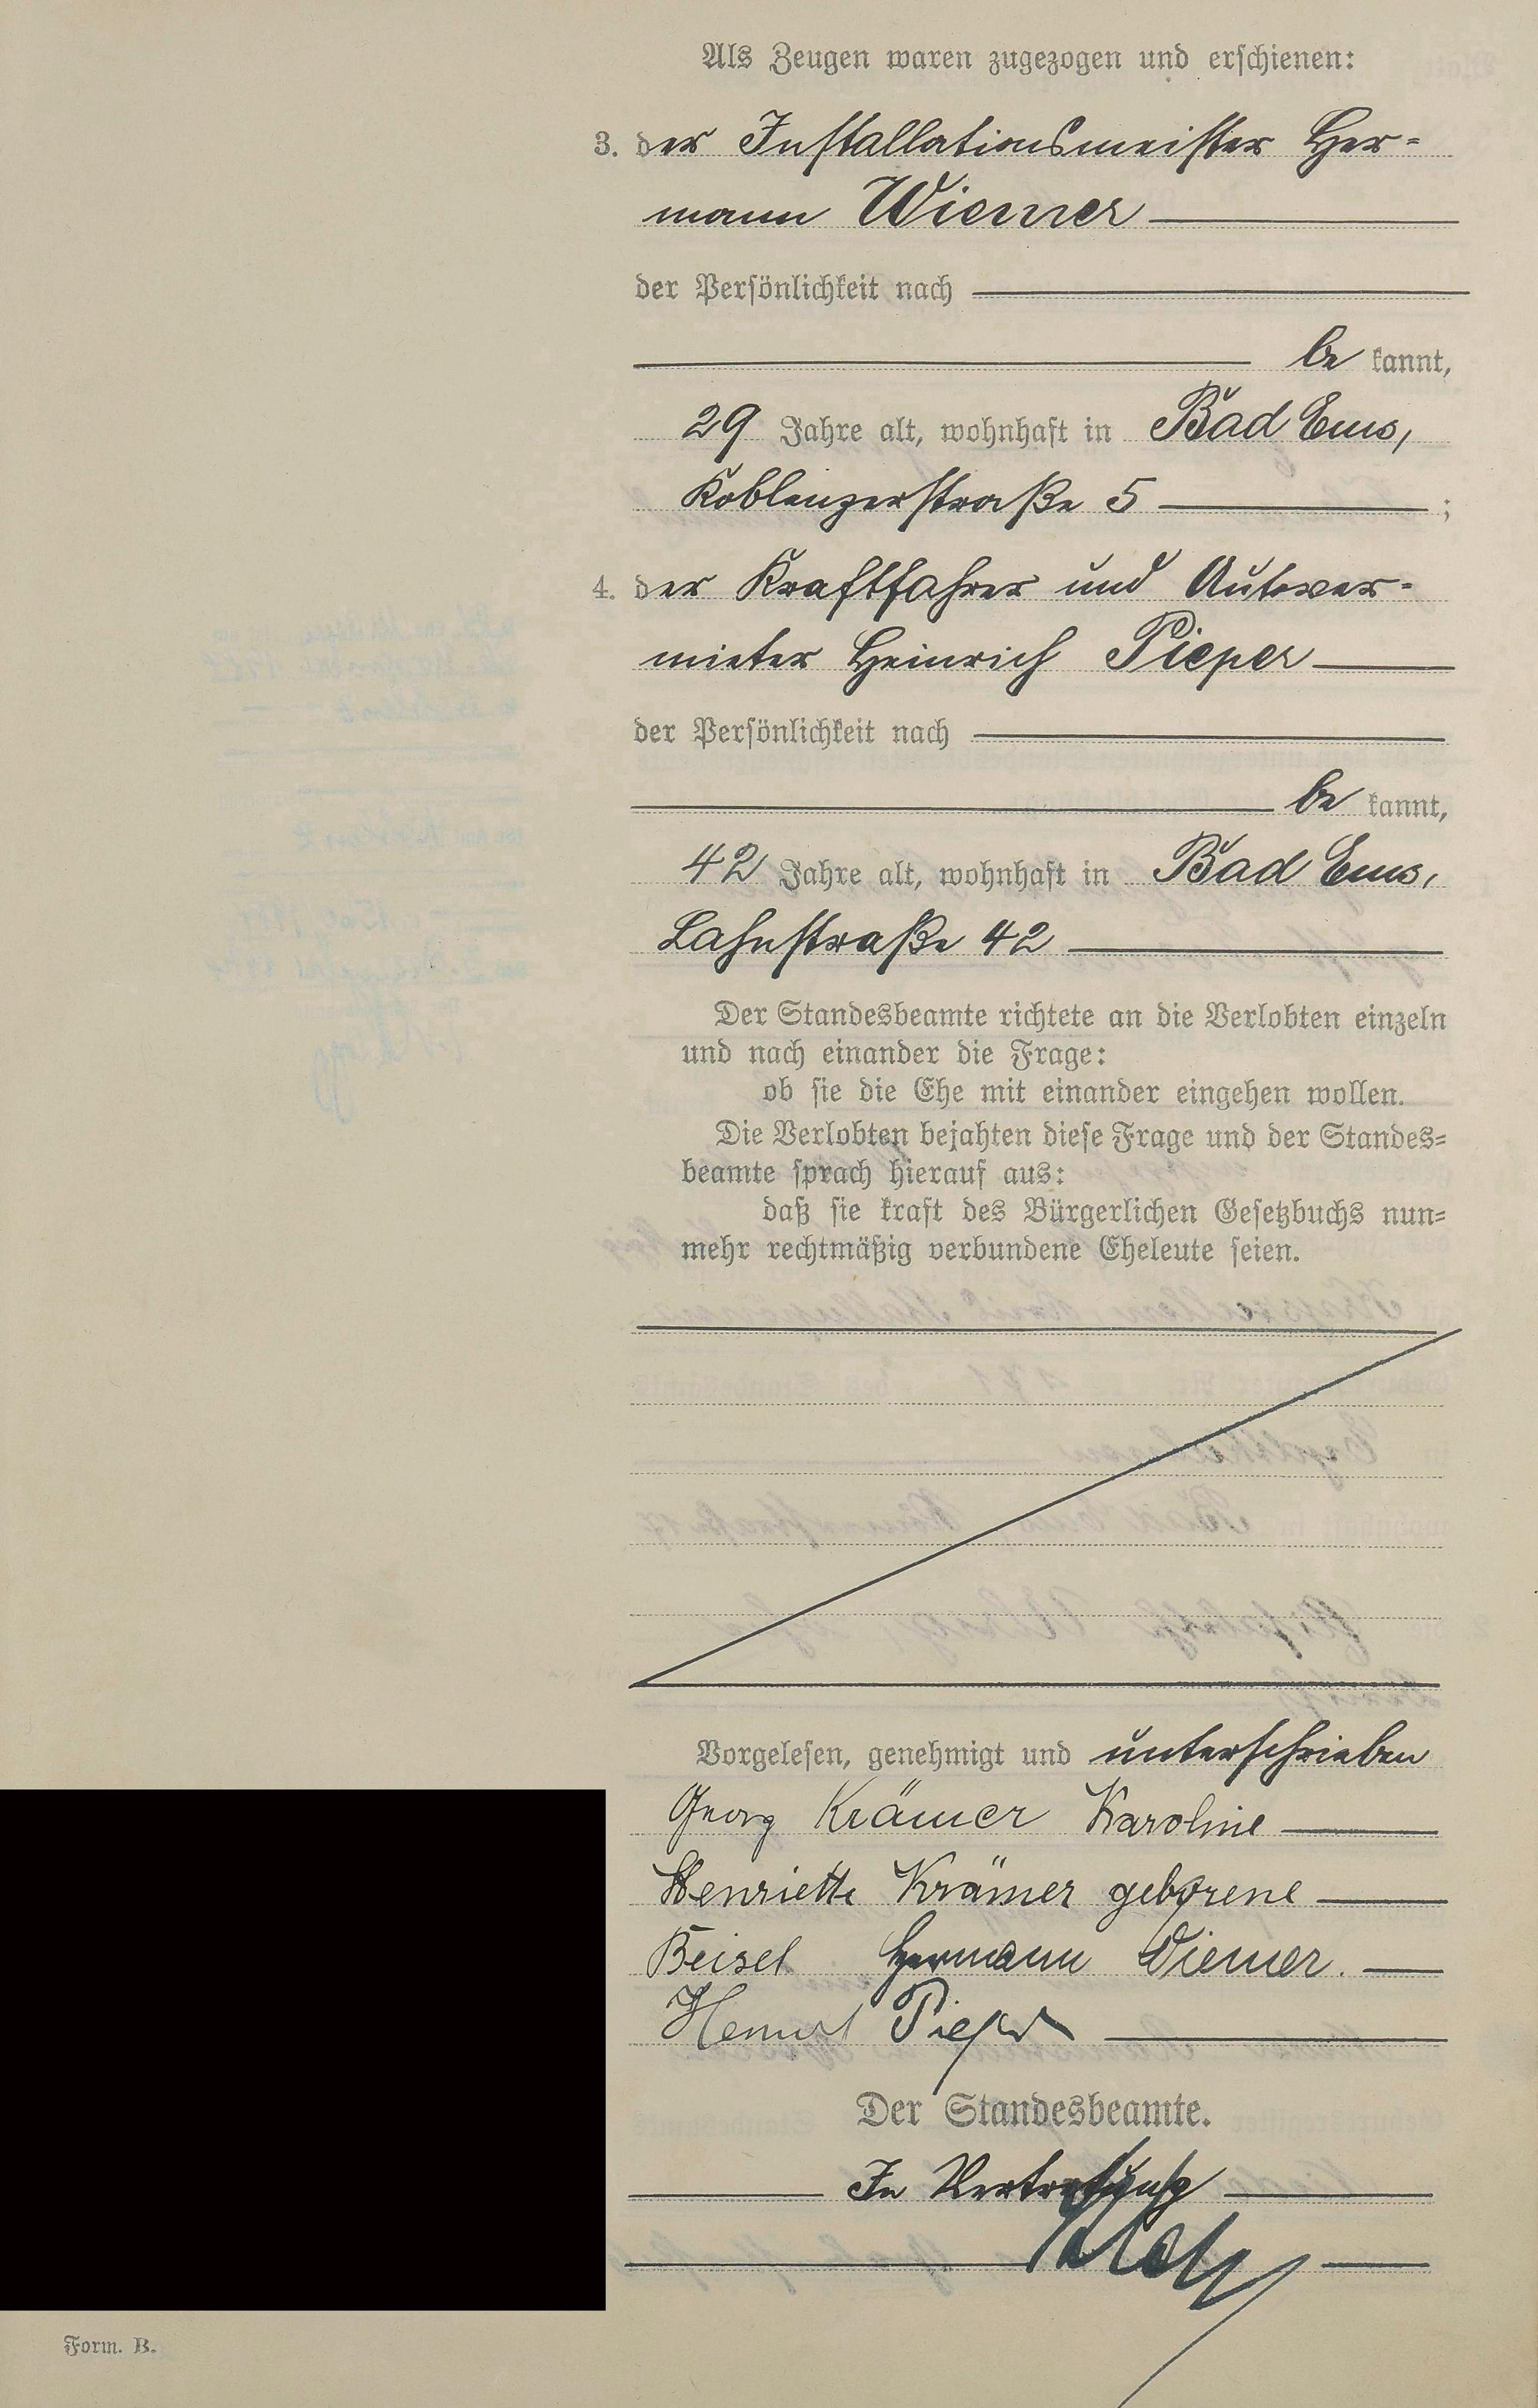 Als Zeugen waren zugezogen und erschienen:
3. der Installationsmeister Her-
mann Wiemer
der Persönlichkeit nach
be kannt,
29 Jahre alt, wohnhaft in Bad Ems,
Koblenzerstraße 5 ;
4. der Kraftfahrer und Autover-
mieter Heinrich Pieper
der Persönlichkeit nach
be kannt,
42 Jahre alt, wohnhaft in Bad Ems,
Lahnstraße 42
Der Standesbeamte richtete an die Verlobten einzeln
und nach einander die Frage:
ob sie die Ehe mit einander eingehen wollen.
Die Verlobten bejahten diese Frage und der Standes-
beamte sprach hierauf aus:
daß sie kraft des Bürgerlichen Gesetzbuchs nun-
mehr rechtmäßig verbundene Eheleute seien.
Vorgelesen, genehmigt und unterschrieben
Georg Krämer Karoline
Henriette Krämer geborene
Beisel Hermann Wiemer.
Pieper
Der Standesbeamte.
In Vertretung
Form. B.